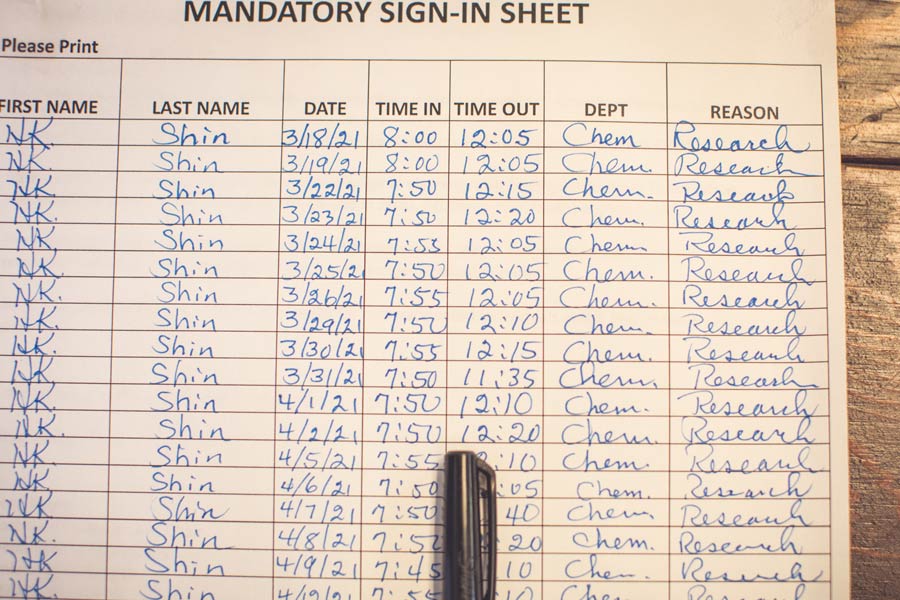 MANDATORY SIGN-IN SHEET
Please Print
FIRST NAME LAST NAME DATE TIME IN TIME OUT DEPT REASON
NK. Shin 3/18/21 8:00 12:05 Chem Research
NK. Shin 3/19/21 8:00 12:05 Chem. Research
NK. Shin 3/22/21 7:50 12:15 Chem. Research
NK. Shin 3/23/21 7:50 12:20 Chem. Research
NK. Shin 3/24/21 7:55 12:05 Chem. Research
NK. Shin 3/25/21 7:50 12:05 Chem. Research
NK. Shin 3/26/21 7:55 12:05 Chem. Research
NK. Shin 3/29/21 7:50 12:10 Chem. Research
NK. Shin 3/30/21 7:55 12:15 Chem. Research
NK. Shin 3/31/21 7:50 11:35 Chem. Research
NK. Shin 4/1/21 7:50 12:10 Chem. Research
NK. Shin 4/2/21 7:50 12:20 Chem. Research
NK. Shin 4/5/21 7:55 :10 Chem. Research
NK. Shin 4/6/21 7:50 :05 Chem. Research
NK. Shin 4/7/21 7:50 40 Chem. Research
NK. Shin 4/8/21 7:50 20 Chem. Research
NK. Shin 4/9/21 7:45 10 Chem. Research
NK. Shin 7:55 10 Chem. Research